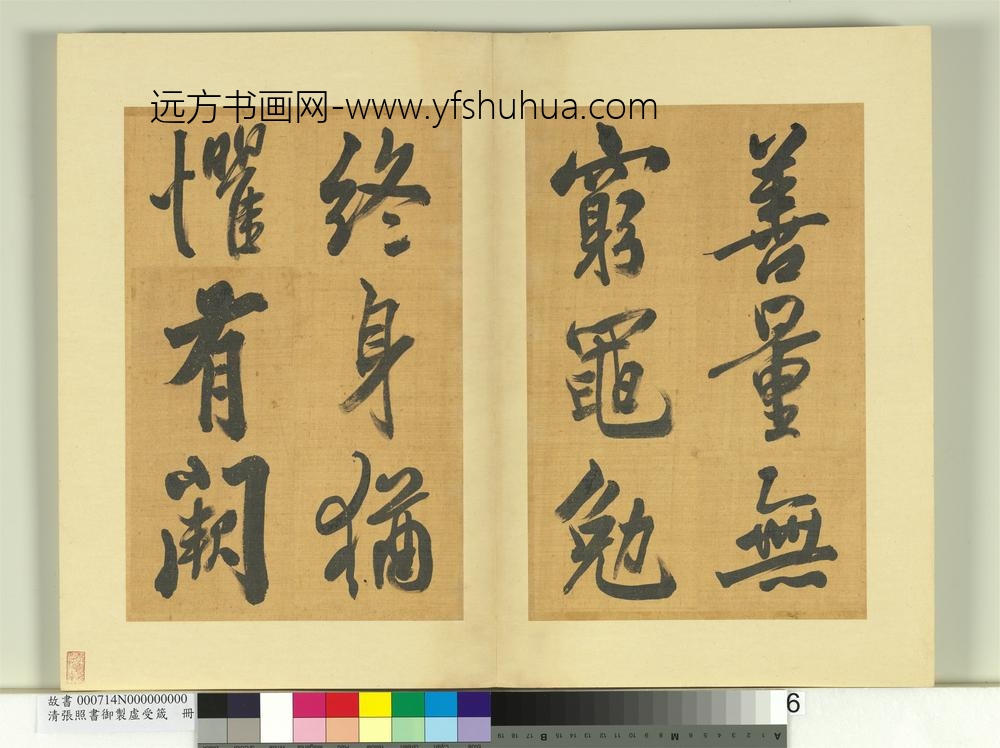 远方书画网-www.yfshuhua.com
善量無
窮黽勉
終身猶
懼有闕
故書 000714N000000000
清張照書御製虛受箴 冊
6